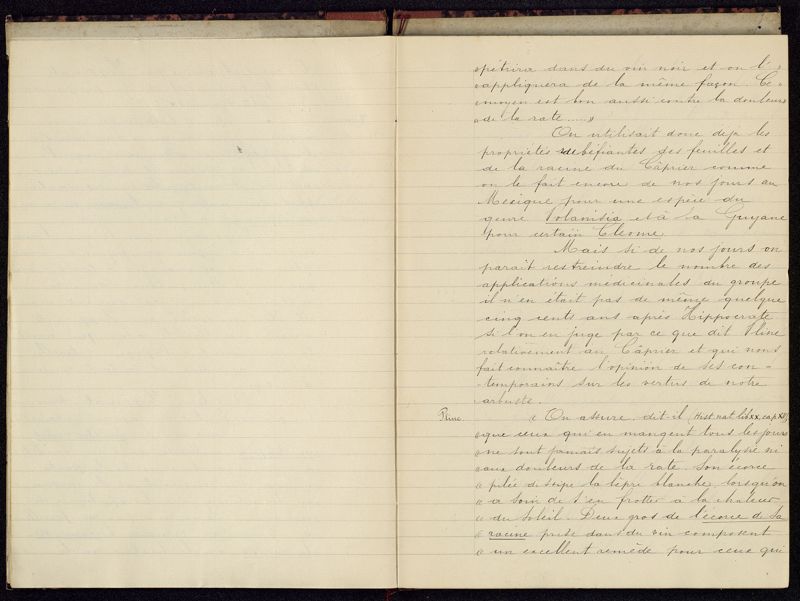 « pétrira dans du vin noir et on l' »
« appliquera de la même façon. Ce »
« moyen est bon aussi contre la douleur
« de la rate ..... »
On utilisait donc déjà les
propriétés des feuilles et
de la racine du Câprier comme
on le fait encore de nos jours au
Mexique pour une espèce du
genre et à La Guyane
pour certain Cleome.
Mais si de nos jours on
parait restreindre le nombre des
applications médicinales du groupe
il n'en était pas de même quelque
cinq cents ans après Hippocrate
si l'on en juge par ce que dit Pline
relativement au Câprier et qui nous
fait connaître l'opinion de ses con-
-temporains sur les vertus de notre
arbuste.
Pline. « On assure, dit-il, (Hist. nat. lib XX, cap XV)
« que ceux qui en mangent tous les jours
« ne sont jamais sujets à la paralysie ni
« aux douleurs de la rate. Son écorce
« pilée dissipe la lèpre blanche, lorsqu'on
« a soin de s'en frotter à la chaleur
« du soleil. Deux gros de l'écorce de la
« racine prise dans du vin composent
« un excellent remède pour ceux qui